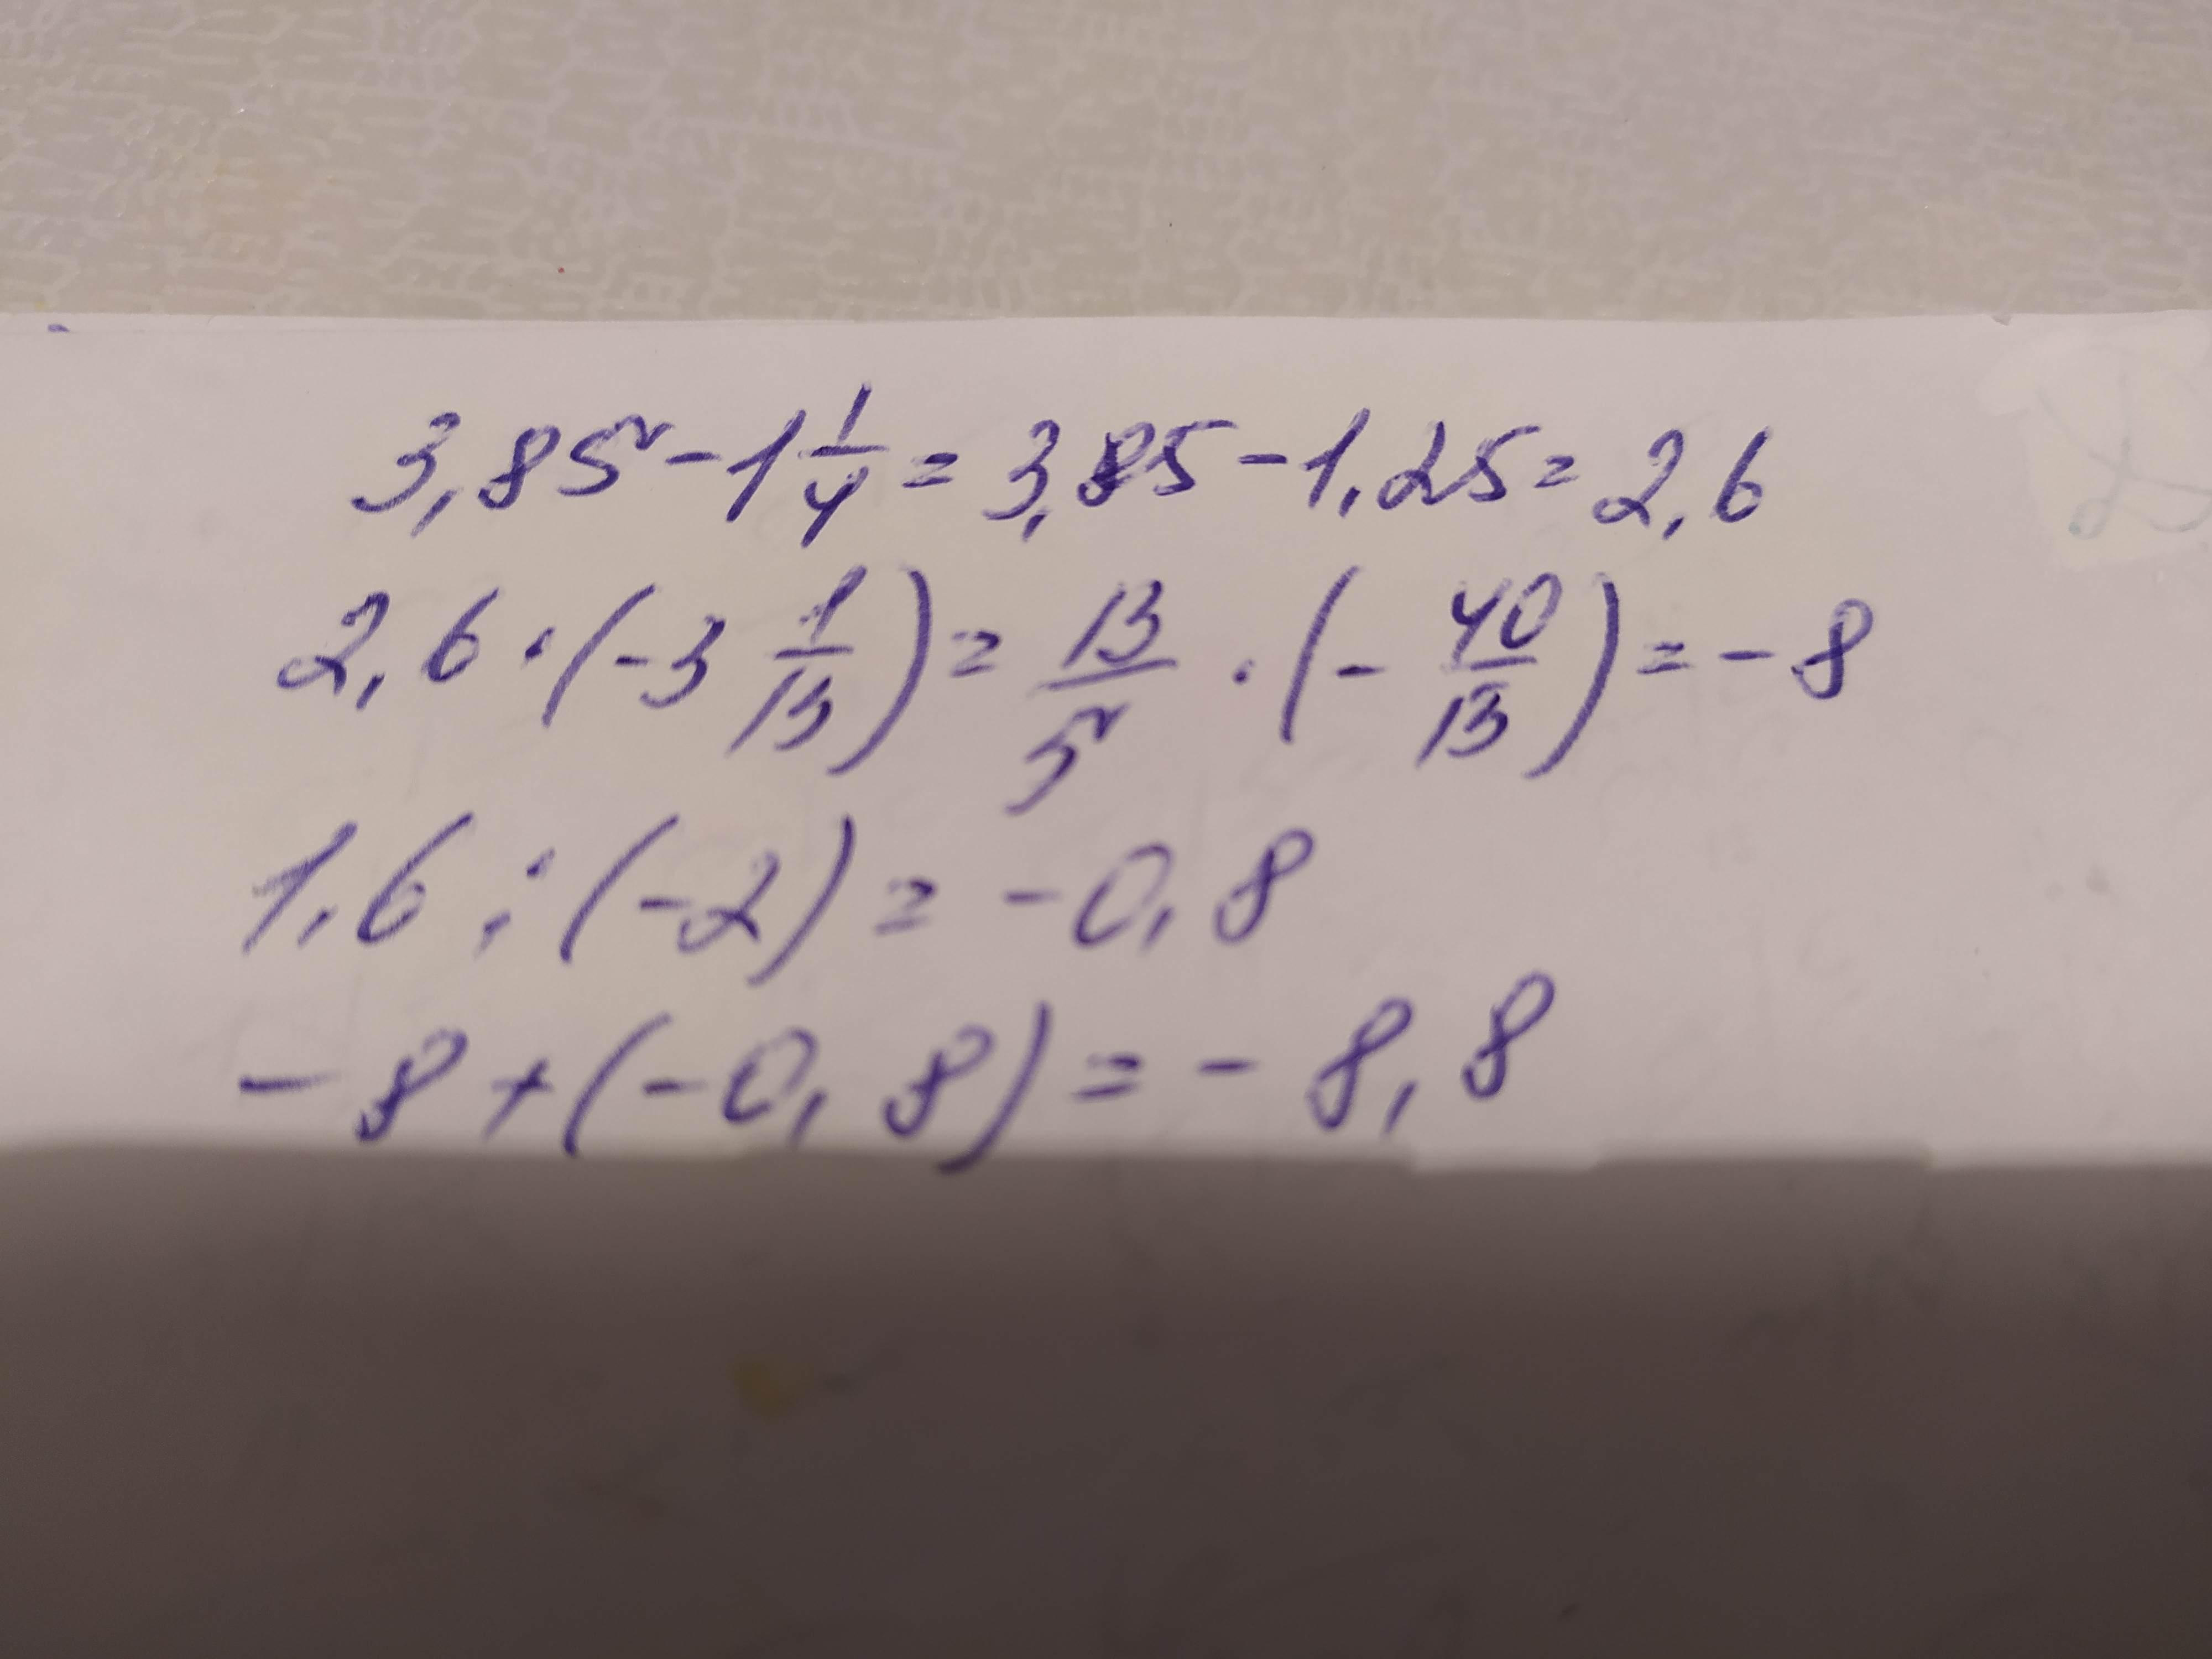 3,85 - 1 1/4 = 3,85 - 1,25 = 2,6
2,6 · (-3 1/13) = 13/5 · (- 40/13) = - 8
1,6 : (-2) = - 0,8
- 8 + (-0,8) = - 8,8